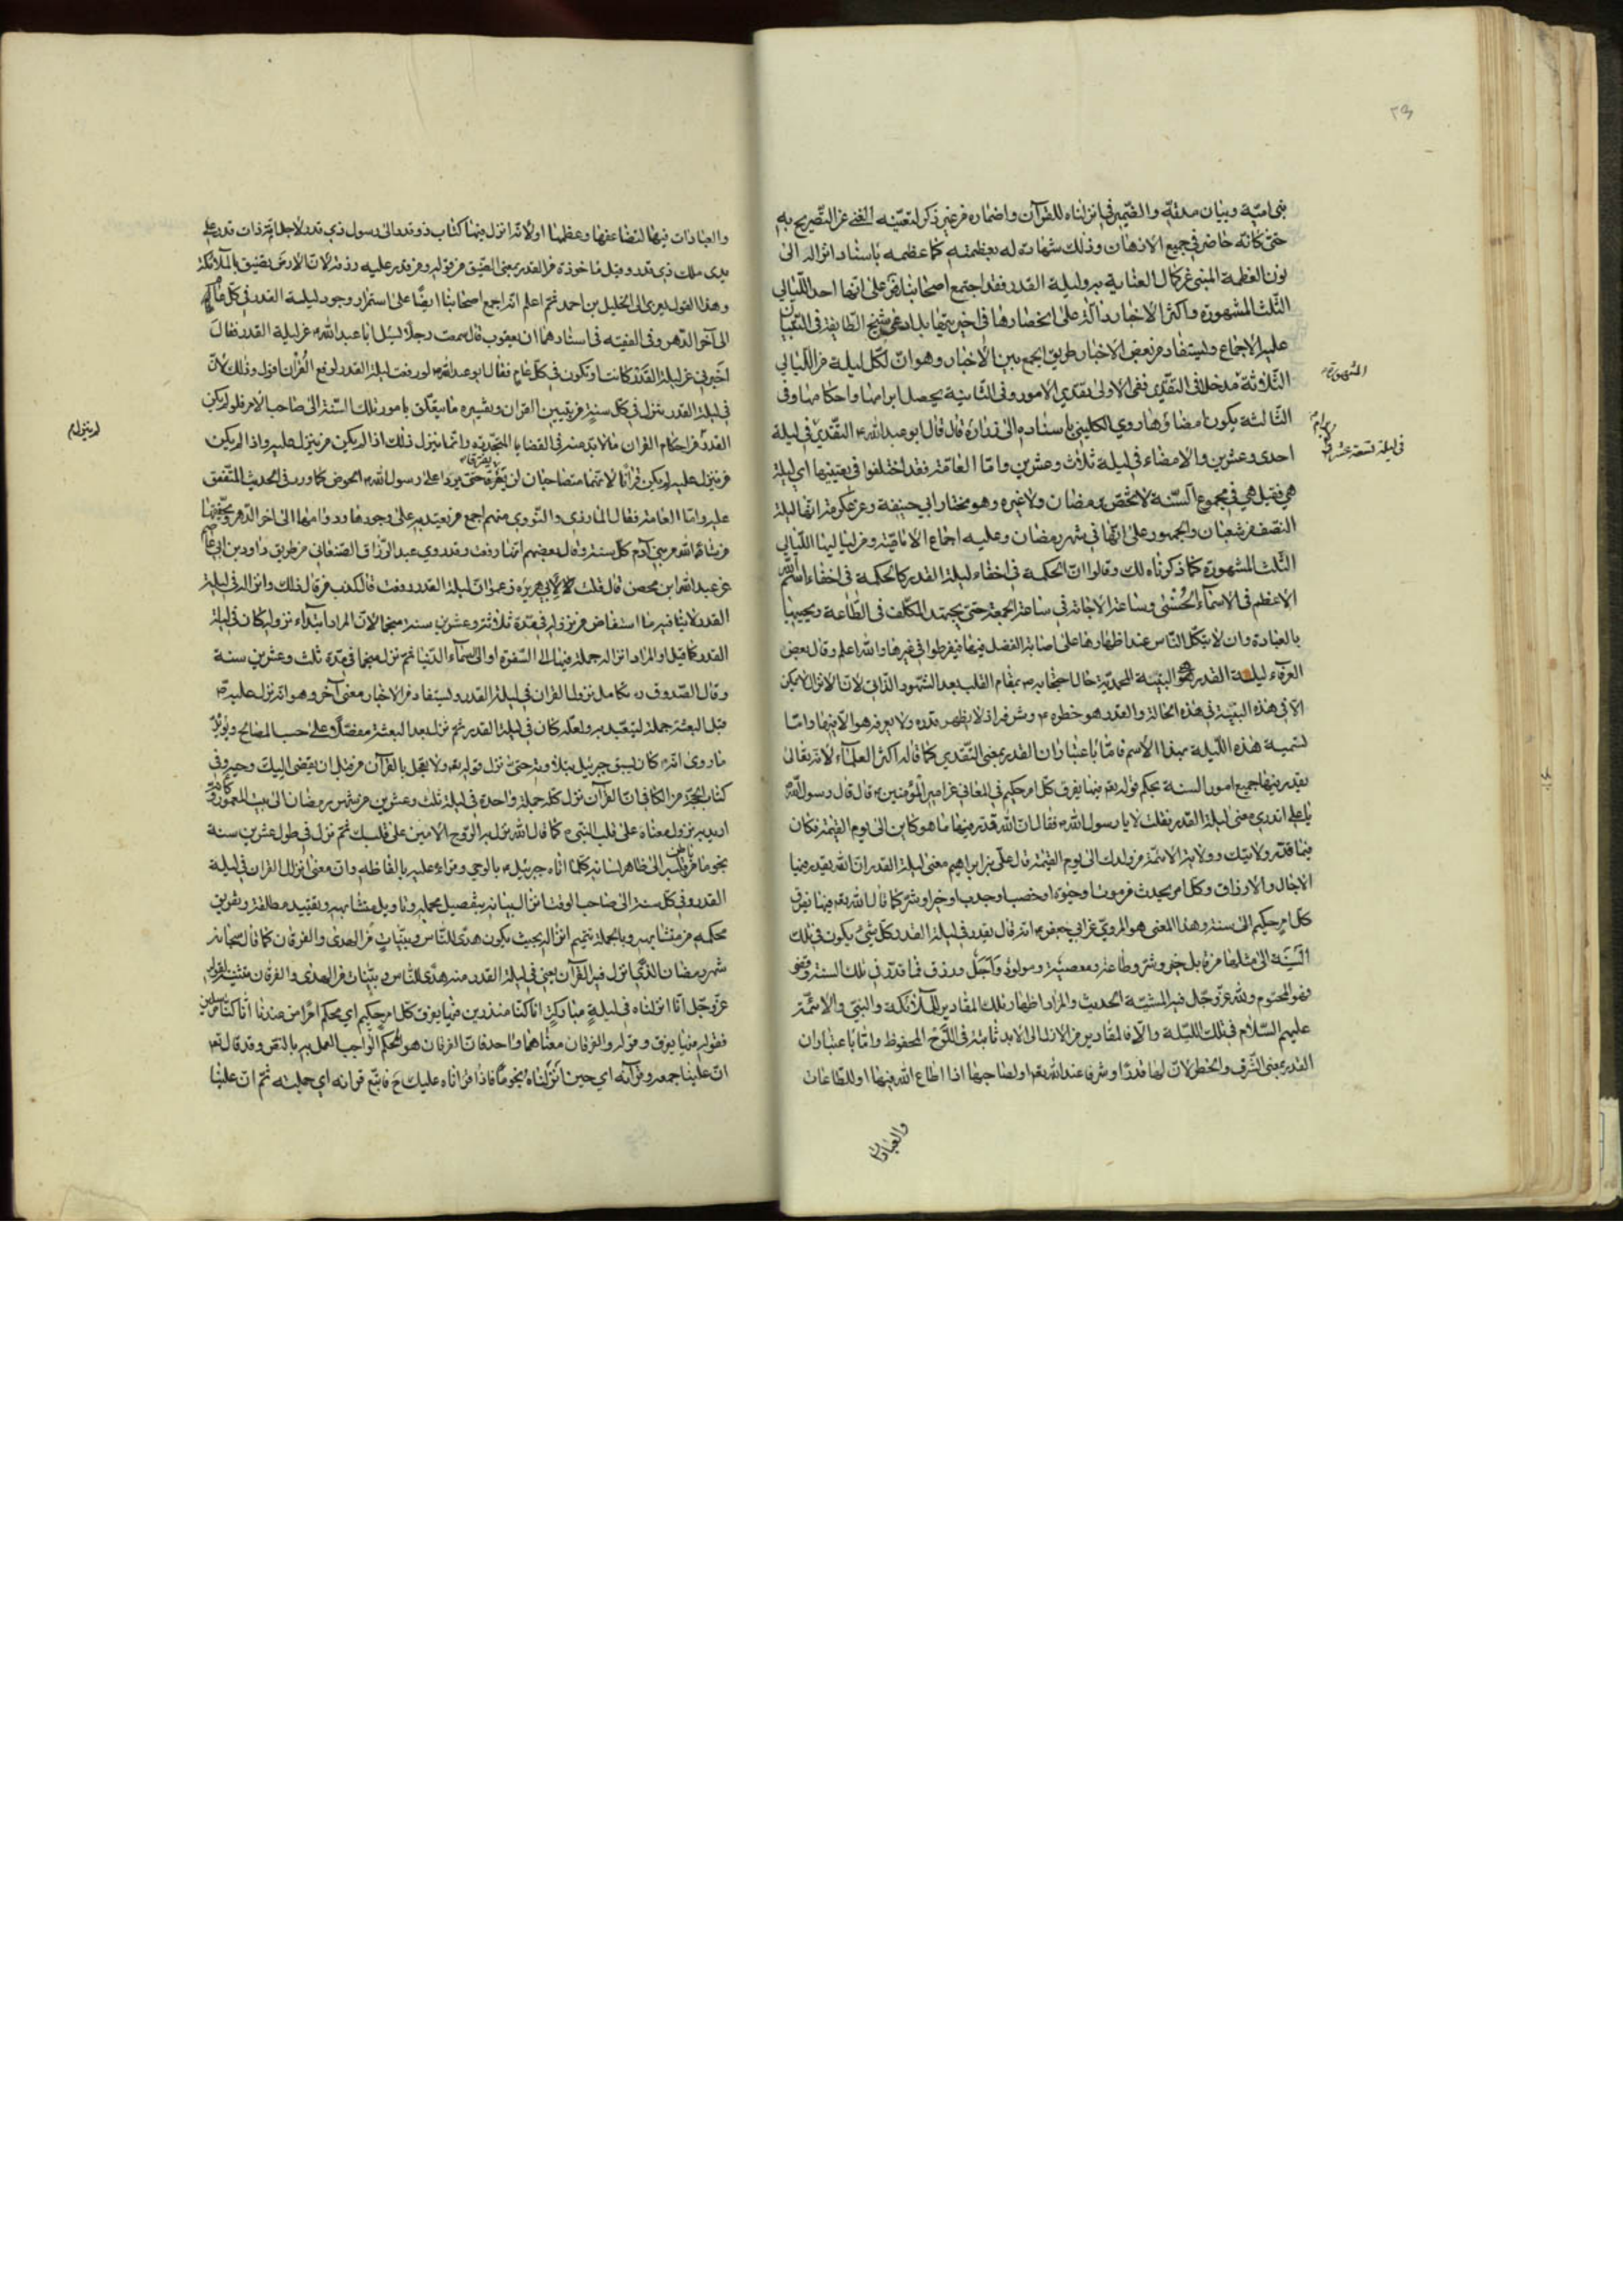 ٢٣
بنى امیّة وبیان مدّته والضّمیر فی انزلناه للقرآن واضماره من غیر ذکر لتعیّنه الغنی عن التّصریح به
حتّی کانّه حاضر فی جمیع الاذهان وذلك شهادة له بعظمته کما عظمه باسناد انزاله الی
نون العظمة المبنی عن کمال العنایة به ولیلة القدر فقد اجتمع اصحابنا رض علی انّها احد اللّیالی
الثّلث المشهورة واکثر الاخبار دالّة علی انحصارها فی اخیرتیها بل ادعی شیخ الطّایفة فی التّبیان
علیه الاجماع ویستفاد من بعض الاخبار طریق الجمع بین الاخبار وهو انّ لکل لیلة من اللّیالی
المشهورة
الثّلاثة مدخلا فی التقدیر ففی الاولی تقدیر الامور وفی الثّانیة یحصل ابرامها واحکامها وفی
الثّالثة یکون امضاؤها روی الکلینی باسناده الی زرارة قال قال ابو عبدالله ع التّقدیر فی لیلة
فی لیلة تسعة عشر
احدی وعشرین والامضاء فی لیلة ثلاث وعشرین وامّا العامّة فقد اختلفوا فی تعیینها ای لیلة
هی فقیل هی فی مجموع السّنة لا تختص برمضان ولا غیره وهو مختار ابی حنیفة وعن عکرمة انّها لیلة
النّصف من شعبان والجمهور علی انّها فی شهر رمضان وعلیه اجماع الامامیّة ومن لیالیها اللّیالی
الثّلث المشهورة کما ذکرناه لك وقالوا انّ الحکمة فی اخفاء لیلة القدر کالحکمة فی اخفاء اسم الله
الاعظم فی الاسمآء الحُسنی وساعة الاجابة فی ساعة الجمعة حتّی یجتهد المکلّف فی الطّاعة ویحییها
بالعبادة وان لا یتّکل النّاس عند اظهارها علی اصابة الفضل فیها فیفرطوا فی غیرها والله اعلم وقال بعض
العرفآء لیلة القدر هی البنیة المحمدیّة حال احتجابه ع بمقام القلب بعد الشّهود الذّاتی لانّ الانزال لا یمکن
الّا فی هذه البنیة فی هذه الحالة والقدر هو خطره ع وشرفه اذ لا یظهر قدره ولا یعرفه هو الّا فیها وامّا
تسمیة هذه اللّیلة بهذا الاسم فامّا باعتبار ان القدر بمعنی التّقدیر کما قاله اکثر العلمآء لانّه تعالی
یقدر فیها جمیع امور السنة بحکم قوله تع فیها یفرق کلّ امر حکیم فی المعانی عن امیر المؤمنین ع قال قال رسول الله
یا علی اتدری معنی لیلة القدر فقلت لا یا رسول الله ص فقال انّ الله قدّر فیها ما هو کاین الی یوم القیمة فکان
فیما قدّر ولایتك وولایة الائمّة من ولدك الی یوم القیمة قال علی بن ابراهیم معنی لیلة القدر انّ الله یقدر فیها
الاجال والارزاق وکلّ امر یحدث من موت او حیوة او خصب او جدب او خیر او شرّ کما قال الله تع فیها یفرق
کلّ امر حکیم الی سنة وهذا المعنی هو المرویّ عن ابی جعفر ع انّه قال یقدر فی لیلة القدر کلّ شیء یکون فی تلك
السّنة الی مثلها من قابل خیر وشرّ وطاعة ومعصیة ومولود وآجل ورزق فما قدّر فی تلك السنة وقضی
فهو المحتوم ولله عزّ وجلّ فیه المشیّة الحدیث والمراد اظهار تلك المقادیر للملآئکة والنبیّ والائمّة
علیهم السّلام فی تلك اللّیلة والّا فالمقادیر من الازل الی الابد ثابتة فی اللّوح المحفوظ وامّا باعتبار ان
القدر بمعنی الشّرف والخطر لانّ لها قدرًا وشرفا عند الله تع او لصاحبها اذا اطاع الله فیها او للطّاعات
والعبادات
والعبادات فیها لتضاعفها وعظمها او لانّه انزل فیها کتاب ذو قدر الی رسول ذی قدر لاجل امّة ذات قدر علی
یدی ملك ذی قدر وقیل مأخوذة من القدر بمعنی الضّیق من قوله ومن قدر علیه رزقه لانّ الارض تضیق بالملآئکة
وهذا القول یعزی الی الخلیل بن احمد ثم اعلم انّه اجمع اصحابنا ایضًا علی استمرار وجود لیلة القدر فی کلّ عام
الی آخر الدّهر وفی الفقیه فی اسنادهما ان یعقوب قال سمعت رجلًا یسئل ابا عبدالله ع عن لیلة القدر فقال
اخبرنی عن لیلة القَدْر کانت او تکون فی کلّ عام فقال ابو عبدالله ع لو رفعت لیلة القدر لرفع القُرآن اقول وذلك لانّ
فی لیلة القدر ینزل فی کلّ سنة من تبیین القران وتفسیره ما یتعلّق بامور تلك السّنة الی صاحب الامر فلو لم یکن لیلة
القدر لم ینزل من احکام القران ما لا بدّ منه فی القضایا المتجدّده وانّما ینزل ذلك اذا لم یکن من ینزل علیه واذا لم یکن
لم ینزل
من ینزل علیه لم یکن قرآنًا لانّهما متصاحبان لن یفترقا حتّی یردا علی رسول الله ص الحوض کما ورد فی الحدیث المتّفق
علیه وامّا العامّة فقال المازری والنّووی منهم اجمع من یعتدّ به علی وجودها ودوامها الی اخر الدّهر
من شاء الله من بنی آدم کلّ سنة وقال بعضهم انّها رفعت وقد روی عبد الرّزاق الصّنعانی من طریق داود بن ابی عاصم
عن عبدالله ابن محصن قال قلت لابی هریرة زعموا انّ لیلة القدر رفعت قال کذب من قال ذلك وانزاله فی لیلة
القدر لا ینافیه ما استفاض من نزوله فی مدّة ثلاثة وعشرین سنة منجمًا لانّ المراد ابتدآء نزوله کان فی لیلة
القدر کما قیل او المراد انزاله جملة فیها الی السّفرة او الی السمآء الدّنیا ثم نزله منجما فی مدّة ثلث وعشرین سنة
وقال الصّدوق ره تکامل نزول القران فی لیلة القدر ویستفاد من الاخبار معنی آخر وهو انّه نزل علیه ص
قبل البعثة جملة لیتعبّد به ولعلّه کان فی لیلة القدر ثم نزل بعد البعثة مفصّلًا علی حسب المصالح ویؤیّد
ما روی انّه ص کان یسبق جبرئیل بتلاوته حتّی نزل قوله تع ولا تعجل بالقرآن من قبل ان یقضی الیك وحیه وفی
کتاب الحجّة من الکافی انّ القرآن نزل کلّه جملة واحدة فی لیلة ثلث وعشرین من شهر رمضان الی بیت المعمور وکانّه
ارید به نزول معناه علی قلب النّبی ص کما قال الله نزل به الرّوح الامین علی قلبك ثم نزل فی طول عشرین سنة
نجوما من باطن قلبه الی ظاهر لسانه کلّما اتاه جبرئیل ع بالوحی وقرأه علیه بالفاظه وانّ معنی انزال القران فی لیلة
القدر وفی کلّ سنة الی صاحب الوقت انزال بیانه بتفصیل مجمله وتأویل متشابهه وتقیید مطلقه وتفریق
محکمه من متشابهه وبالجملة تتمیم انزاله بحیث یکون هدًی للنّاس وبیّناتٍ من الهدی والفرقان کما قال سبحانه
شهر رمضان الّذی انزل فیه القرآن یعنی فی لیلة القدر منه هدًی للنّاس وبیّنات من الهدی والفرقان تثنیة لقوله
عزّ وجلّ انّا انزلناه فی لیلةٍ مبارکةٍ انا کنّا منذرین فیها یفرق کلّ امر حکیم ای محکم امرًا من عندنا انّا کنّا مرسلین
فقوله فیها یفرق وقوله والفرقان معناهما واحد فانّ الفرقان هو المحکم الواجب العمل به بالنّص وقد قال تع
انّ علینا جمعه وقرآنه ای حین انزلناه نجومًا فاذا قرأناه علیك ح فاتّبع قرانه ای جملته ثم انّ علینا